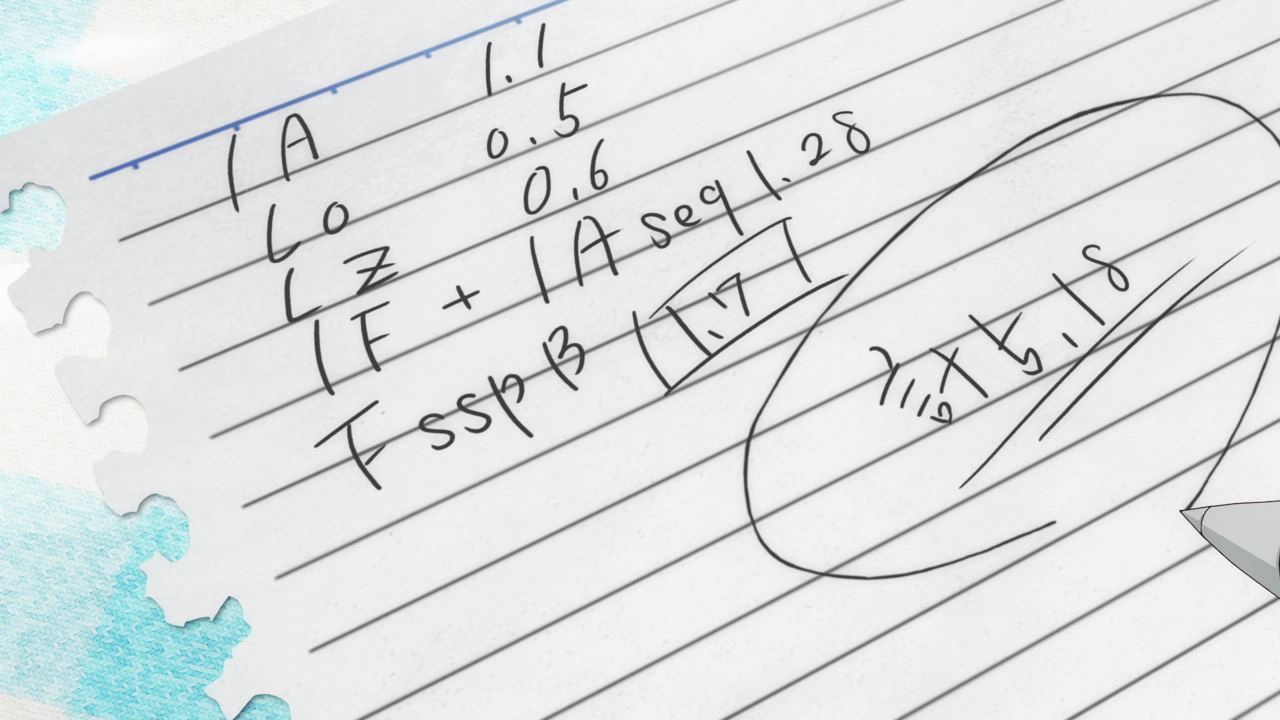 1A 1.1
Lo 0.5
Lz 0.6
1F + 1A seq 1.28
Fssp B 1 1.7
ミスx 5.18